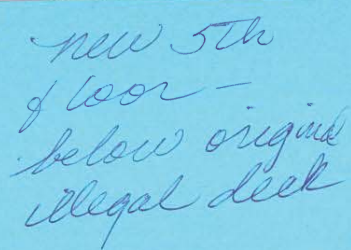 new 5th
floor –
below original
illegal deck